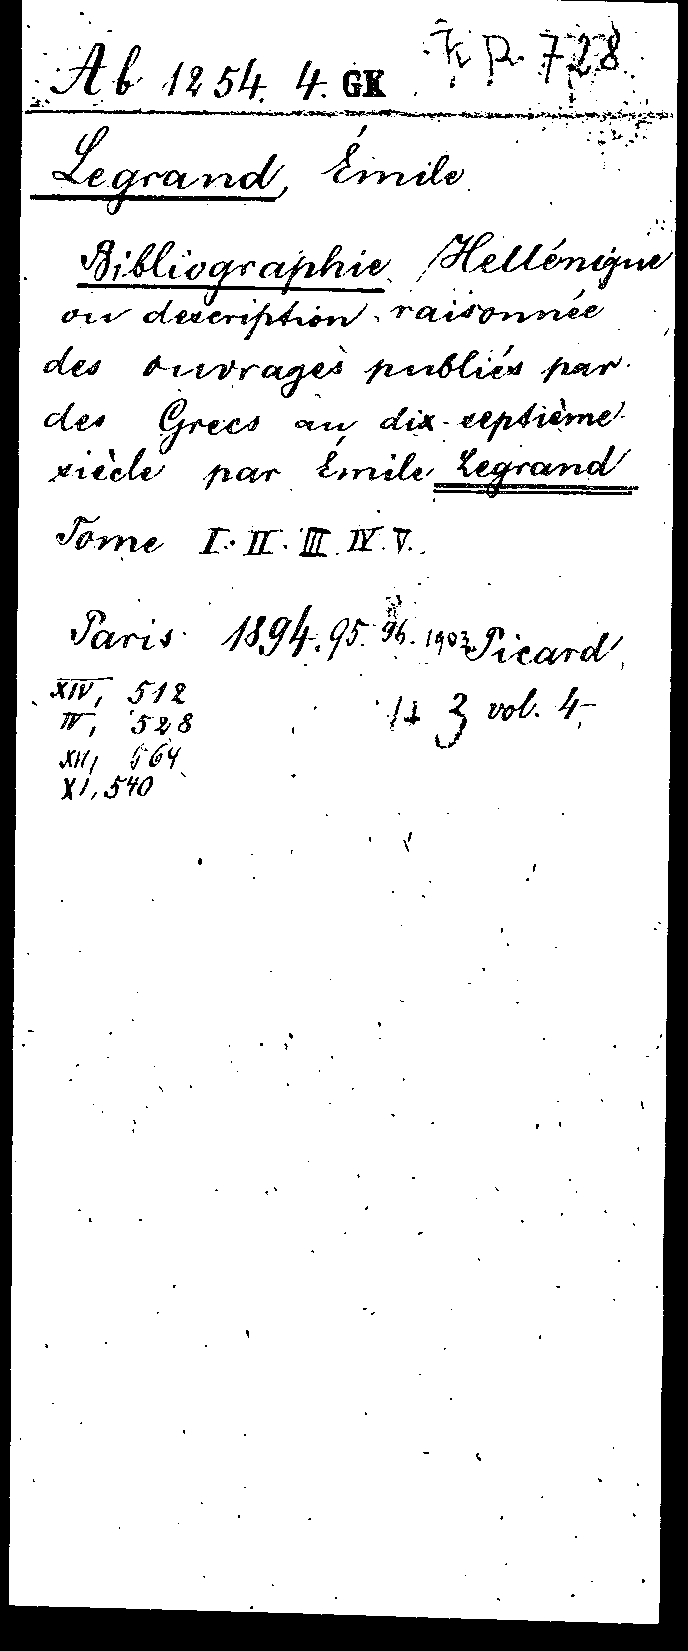 Ab 1254. 4. GK p. 728
Legrand, Émile
Bibliographie Hellénique
ou description raisonnée
des ouvrages publiés par
des Grecs au dix-septième
siècle par Émile Legrand
Tome I. II. III. IV. V.
Paris 1894. 95. 96. 1903 Picard
XIV, 512
3 vol. 4-
IV, 528
XII, 564
XI, 540